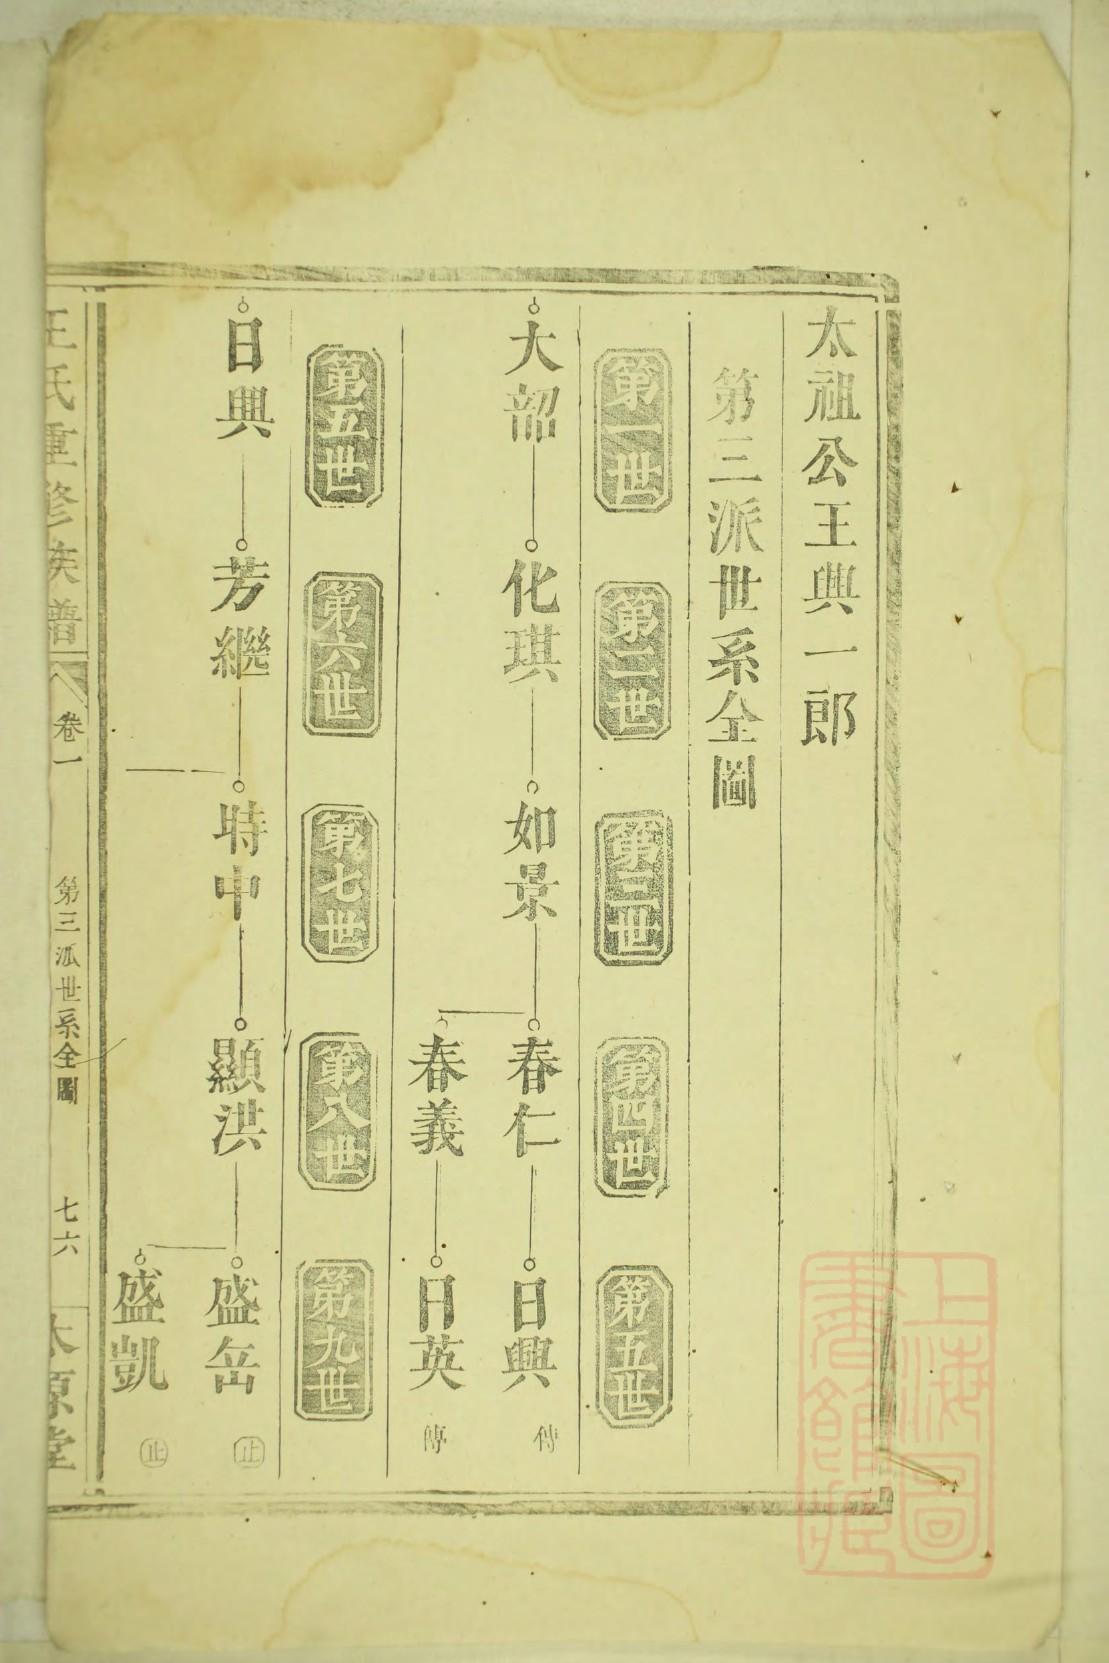 太祖公王典一郎
第三派世系全圖
第一世 第二世 第三世 第四世 第五世
大韶 化琪 如景 春仁 日興 傳
春義 日英 傳
第五世 第六世 第七世 第八世 第九世
日興 芳繼 時中 顯洪 盛缶 止
盛凱 止
王氏重修族譜 卷一 第三派世系全圖 七六 太原堂
上海圖書館藏